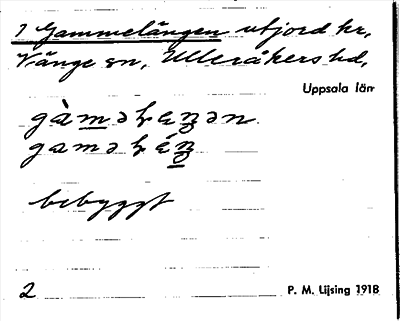 1 Gammelängen utjord kr,
Vänge sn, Ulleråkers hd,
Uppsala län
bebyggt
2 P. M. Lijsing 1918